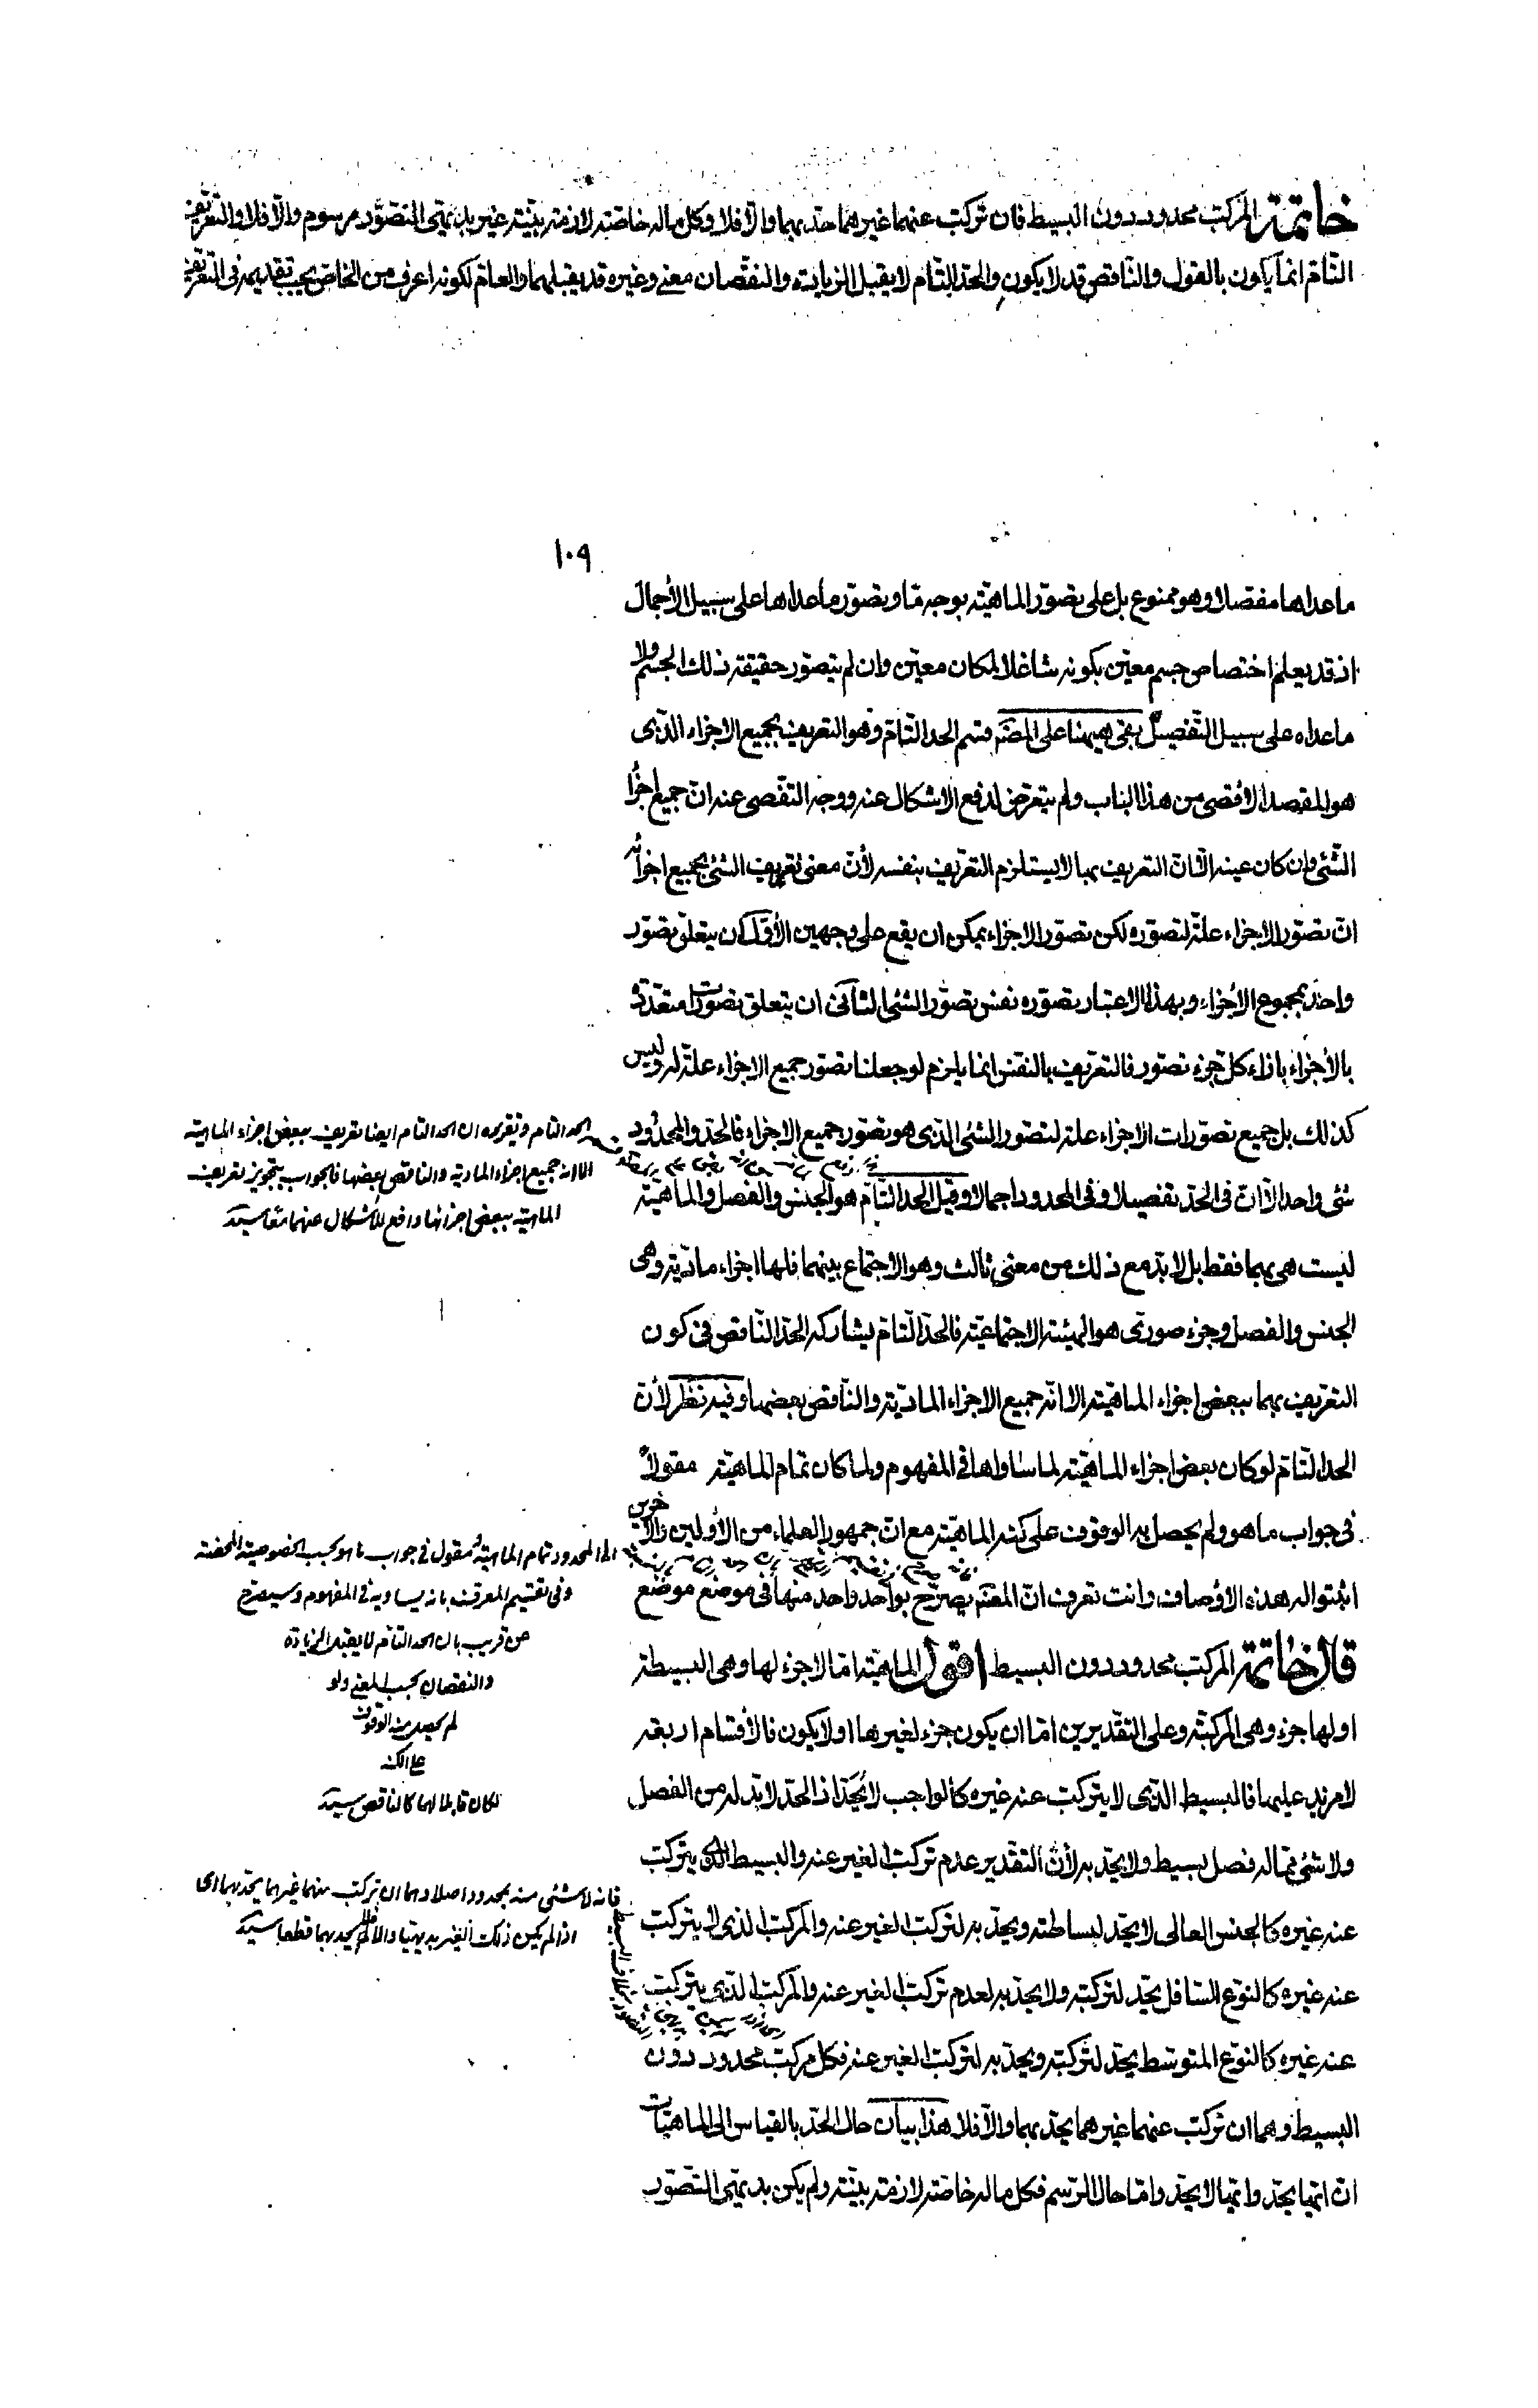 خاتمة المركب محدود دون البسيط فان تركب عنهما غيرهما حد بهما والّا فلا وكل ماله خاصة لازمة بيّنة غير بديهى التصوّر مرسوم والّا فلا والتعريف
التّامّ انما يكون بالقول والنّاقص قد لا يكون والحدّ التّام لا يقبل الزيادة والنقصان معنى وغيره قد يقبلهما والعام لكونه اعرف من الخاصّ يجب تقديمه فى التعريف
١٠٩
ما عداها مفصلا وهو ممنوع بل على تصوّر الماهيّة بوجه مّا وتصوّر ما عداها على سبيل الأجمال
اذ قد يعلم اختصاص جسم معيّن بكونه شاغلا لمكان معيّن وان لم يتصوّر حقيقة ذلك الجسم ولا
ما عداه على سبيل التّفصيل بقى ههنا على المصّ قسم الحد التّامّ وهو التعريف بجميع الاجزاء الذى
هو المقصد الأقصى من هذا الباب ولم يتعرّض لدفع الاشكال عنه ووجه التفصّى عنه انّ جميع اجزاء
الشّئ وان كان عينه الّا انّ التعريف بها لا يستلزم التعريف بنفسه لأنّ معنى تعريف الشئ بجميع اجزائه
انّ تصوّر الاجزاء علّة لتصوّره لكن تصوّر الاجزاء يمكن ان يقع على وجهين الأوّل ان يتعلّق تصوّر
واحد بمجموع الأجزاء وبهذا الاعتبار تصوّره نفس تصوّر الشئ الثّانى ان يتعلق تصورات متعدّدة
بالأجزاء بازاء كلّ جزء تصور فالتعريف بالنفس انما يلزم لو جعلنا تصوّر جميع الاجزاء علّة له وليس
كذلك بل جميع تصوّرات الاجزاء علة لتصوّر الشئ الذى هو تصوّر جميع الاجزاء فالحدّ والمحدُود
شئ واحد الّا انّ فى الحدّ تفصيلا وفى المحدود اجمالا وقيل الحد التّامّ هو الجنس والفصل والماهيّة
ليست هى بهما فقط بل لا بدّ مع ذلك من معنى ثالث وهو الاجتماع بينهما فلها اجزاء مادّية وهى
الجنس والفصل وجزء صورى هو الهيئة الاجتماعيّة فالحدّ التّامّ يشاركه الحدّ النّاقص فى كون
التعريف بهما ببعض اجزاء الماهيّة الا انّه جميع الاجزاء المادّية والنّاقص بعضها وفيه نظر لأنّ
الحدّ التّامّ لو كان بعض اجزاء الماهيّة لما ساواها فى المفهوم ولما كان تمام الماهيّة مقولاً
فى جواب ما هو ولم يحصل به الوقوف على كنه الماهيّة مع انّ جمهور العلماء من الأولين والآخرين
اثبتوا له هذه الاوصاف وانت تعرف انّ المصّ يصرّح بواحد واحد منها فى موضع موضع
قال خاتمة المركب محدود دون البسيط اقول الماهيّة امّا لا جزء لها وهى البسيطة
او لها جزء وهى المركبّة وعلى التقديرين امّا ان يكون جزء لغيرها او لا يكون فالأقسام اربعة
لا مزيد عليها فالبسيط الذى لا يتركّب عنه غيره كالواجب لا يُحَدّ اذ الحدّ لا بدّ له من الفصل
ولا شئ ممّا له فصل بسيط ولا يحدّ به لأنّ التّقدير عدم تركّب الغير عنه والبسيط الذى يتركّب
عنه غيره كالجنس العالى لا يحدّ لبساطته ويحدّ به لتركّب الغير عنه والمركّب الذى لا يتركّب
عنه غيره كالنوّع السّافل يحدّ لتركّبه ولا يحدّ به لعدم تركّب الغير عنه والمركّب الذى يتركّب
عنه غيره كالنوّع المتوسّط يحدّ لتركّبه ويحدّ به لتركّب الغير عنه فكل مركّب محدود دون
البسيط وهما ان تركّب عنهما غيرهما يحدّ بهما والّا فلا هذا بيان حال الحدّ بالقياس الى الماهيّات
انّ ايّها يحدّ وايّها لا يحدّ وامّا حال الرّسم فكل ماله خاصّة لازمة بيّنة ولم يكن بديهىّ التّصّور
الحد التام وتقريره ان الحد التام ايضا تعريف ببعض اجزاء الماهية
الا انه جميع اجزاء المادية والناقص بعضها فالجواب بتجويز تعريف
الماهية ببعض اجزائها دافع للأشكال عنهما معا
المحدود تمام الماهية مقول فى جواب ما هو بحسب الخصوصية المحضة
وفى تقسيم المعرف بانه يساويه فى المفهوم وسيصرح
عن قريب بان الحد التام لا يقبل الزيادة
والنقصان بحسب المعنى ولو
لم يحصل منه الوقوف
على الكنه
لكان قابلا لهما كالناقص
فانه لا شئ منه بمحدود اصلا وهما ان تركب عنهما غيرهما يحد بهما اى
اذا لم يكن ذلك الغير بديهيا والا لم يحد بهما قطعا